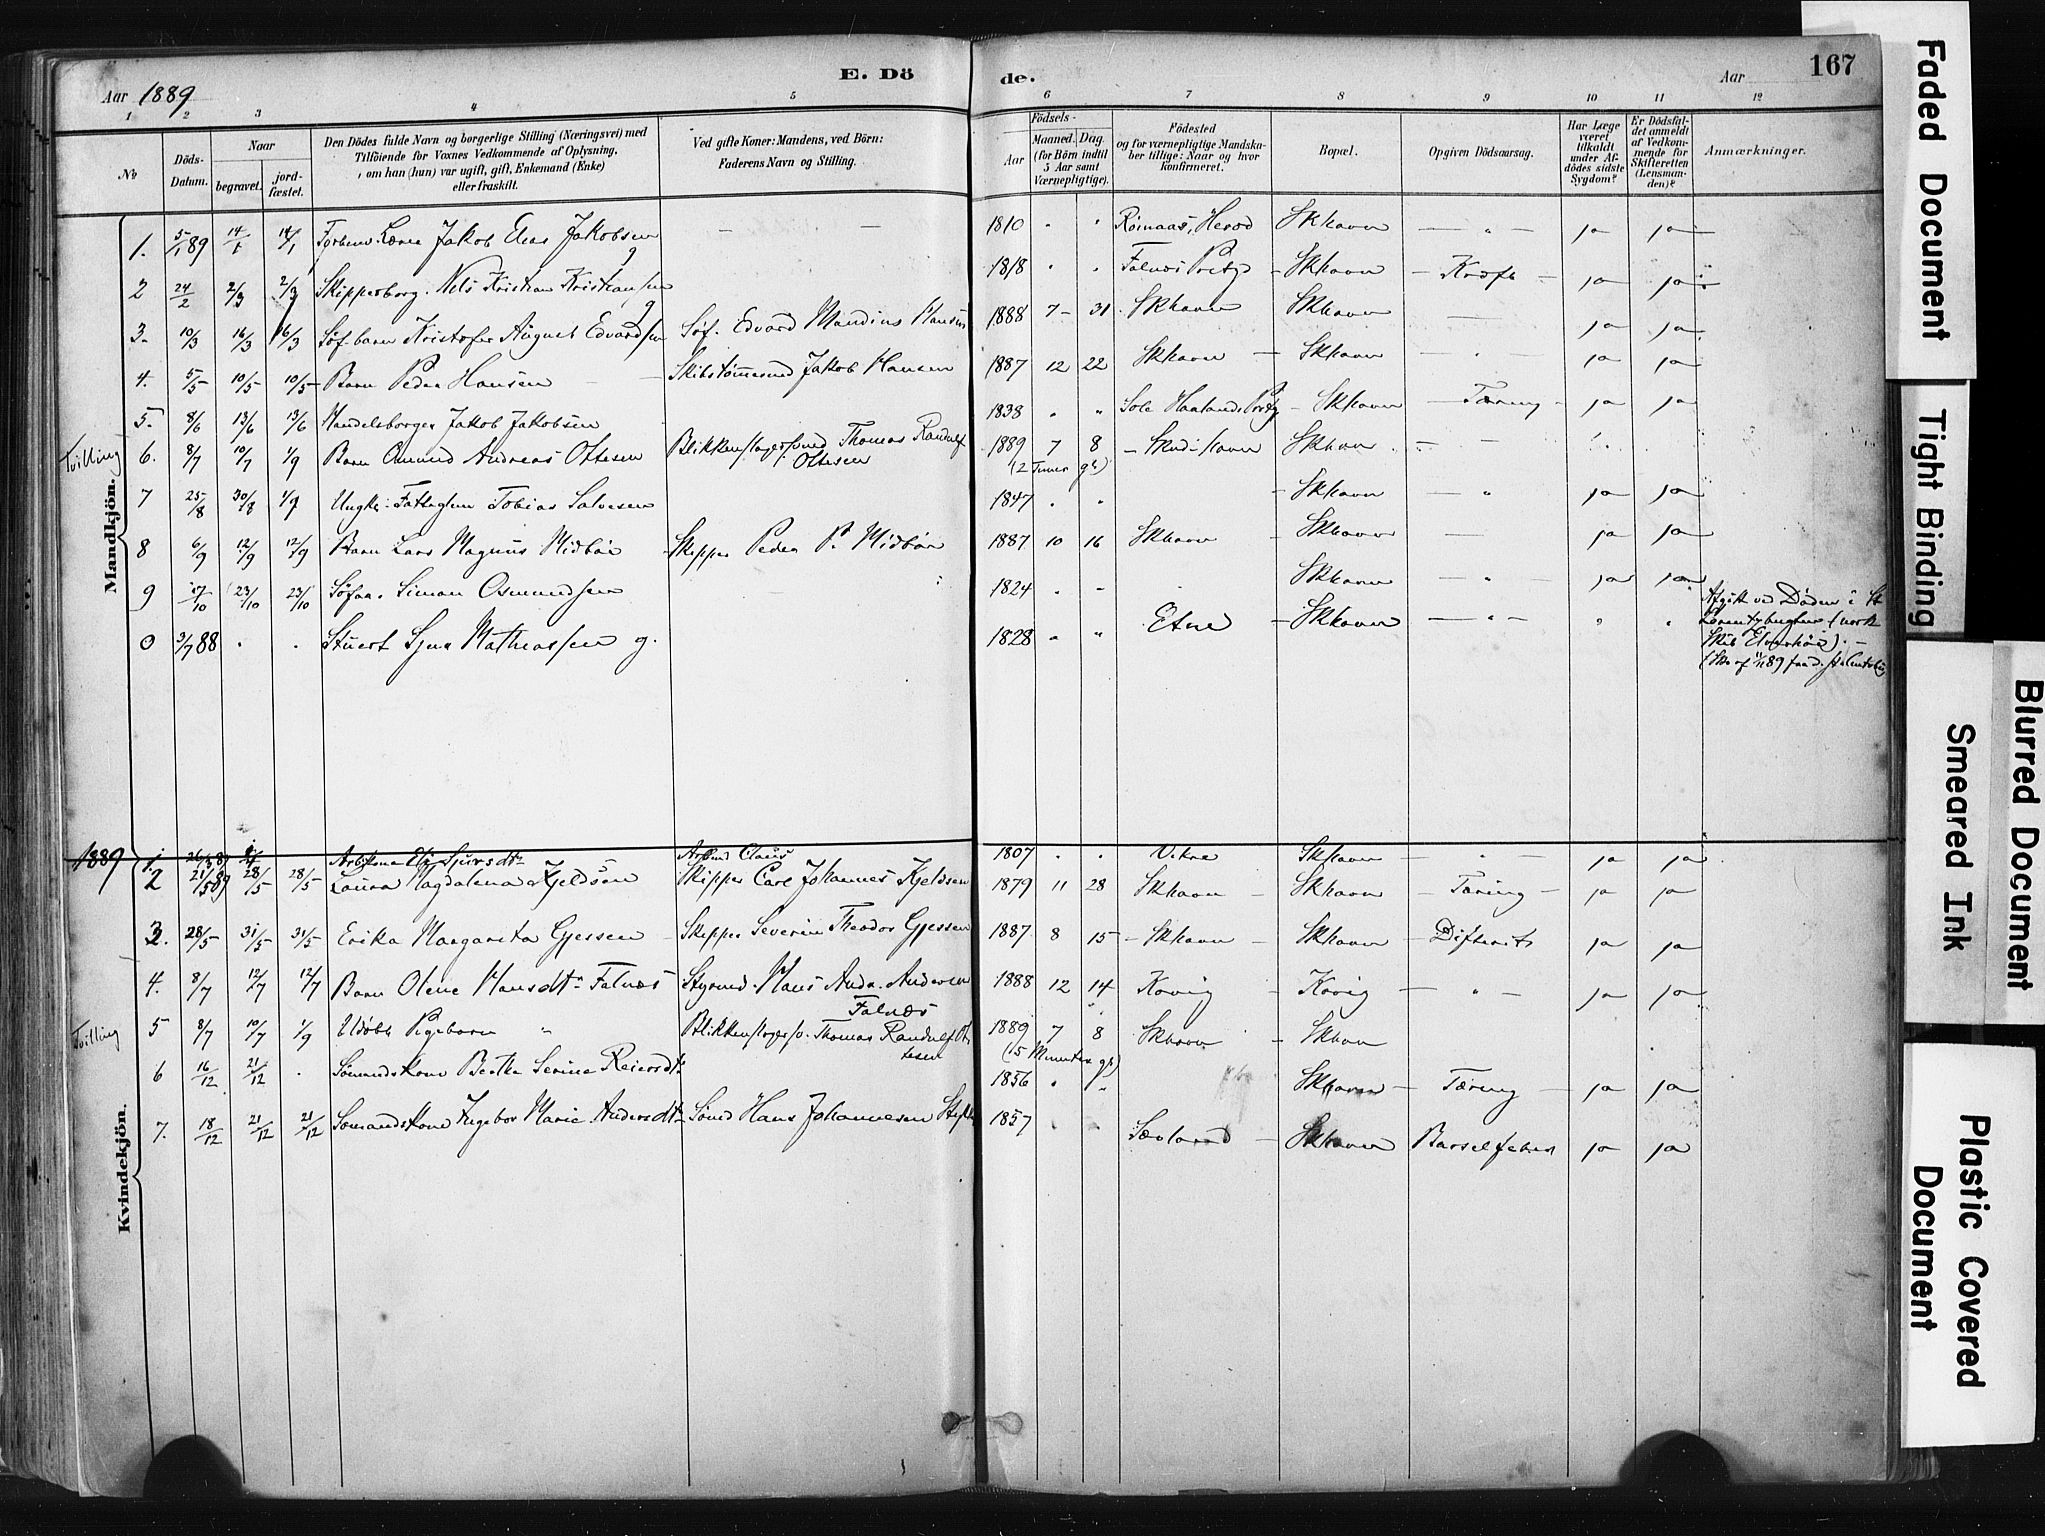 Aar 1889
E. Dö
de.
Aar
167
1 2 3 4 5 6 7 8 9 10 11 12
No
Döds-Datum.
Naar
begravet.
jord-fæstet.
Den Dödes fulde Navn og borgerlige Stilling (Næringsvei) med
Tilföiende for Voxnes Vedkommende af Oplysning,
om han (hun) var ugift, gift, Enkemand (Enke)
eller fraskilt.
Ved gifte Koner: Mandens, ved Börn:
Faderens Navn og Stilling.
Födsels-
Aar
Maaned. Dag.
(for Börn indtil
5 Aar samt
Værnepligtige).
Födested
og for værnepligtige Mandska-
ber tillige: Naar og hvor
konfirmeret.
Bopæl.
Opgiven Dödsaarsag.
Har Læge
været
tilkaldt
under Af-
dödes sidste
Sygdom?
Er Dödsfal-
det anmeldt
af Vedkom-
mende for
Skifteretten
(Lensman-
den)?
Anmærkninger.
Mandkjön.
1. 5/1 89 14/1 14/1 Jakob Elias Jakobsen g 1810 " " Skhavn — " — ja ja
2 24/2 2/3 2/3 Skipperborg. Nels Kristian Kristiansen g 1818 " " Falnes Prstgj Skhavn Kræft ja ja
3. 10/3 16/3 16/3 Söf. barn Kristofer August Edvardsen Söf. Edvard Mandius Hansen 1888 7 31 Skhavn Skhavn ja ja
4. 5/5 10/5 10/5 Barn Peder Hansen Skibstømmermd Jakob Hansen 1887 12 22 Skhavn Skhavn ja ja
5. 8/6 13/6 13/6 Handelsborger Jakob Jakobsen 1838 " " Sole Haalands Prstgj Skhavn Tæring ja ja
Tvilling 6. 8/7 10/7 1/9 Barn Omund Andreas Ottesen Blikkenslagersvend Thomas Randulf Ottesen 1889 7 8 (2 Timer gl) Skudshavn Skhavn
7 25/8 30/8 1/9 Ungk. Tobias Salvesen 1847 " " Skhavn — " — ja ja
8 6/9 12/9 12/9 Barn Lars Magnus Midbøe Skipper Peder P. Midbøe 1887 10 16 Skhavn Skhavn ja ja
9 17/10 23/10 23/10 Söfaa. Simon Osmundsen 1824 " " Skhavn — " — ja ja
0 3/7 88 " " Stuert Sjur Mathiassen g. 1828 " " Etne Skhavn — " — " "
Afgik ved Døden i St
Lorentzbugten (norsk
Skib
1889
Kvindekjön.
1. 26/3 89 Sjursdtr Arbmd Claus 1807 " " Vikre Skhavn — " — ja ja
2 21/5 89 28/5 28/5 Laura Magdalena Kjeldsen Skipper Carl Johannes Kjeldsen 1879 11 28 Skhavn Skhavn Tæring ja ja
3. 28/5 31/5 31/5 Erika Margareta Gjessen Skipper Severin Theodor Gjessen 1887 8 15 Skhavn Skhavn Difterit ja ja
4. 8/7 12/7 12/7 Barn Olene Hansdtr Falnæs Styrmd. Hans Andr. Andersen Falnæs 1888 12 14 Kovig Kovig — " — ja ja
Tvilling 5 8/7 10/7 1/9 Udøbt Pigebarn " Blikkenslagersv. Thomas Randulf Ottesen 1889 7 8 (15 Minutter gl) Skhavn Skhavn
6 16/12 21/12 " Sømandskone Berthe Serine Reiersdtr 1856 " " Skhavn Tæring ja ja
7. 18/12 21/12 21/12 Sømandskone Ingebor Marie Andersdtr Sømd Hans Johannesen 1857 " " Sævland Skhavn Barselfeber ja ja
Faded Document
Tight Binding
Blurred Document
Smeared Ink
Plastic Covered
Document